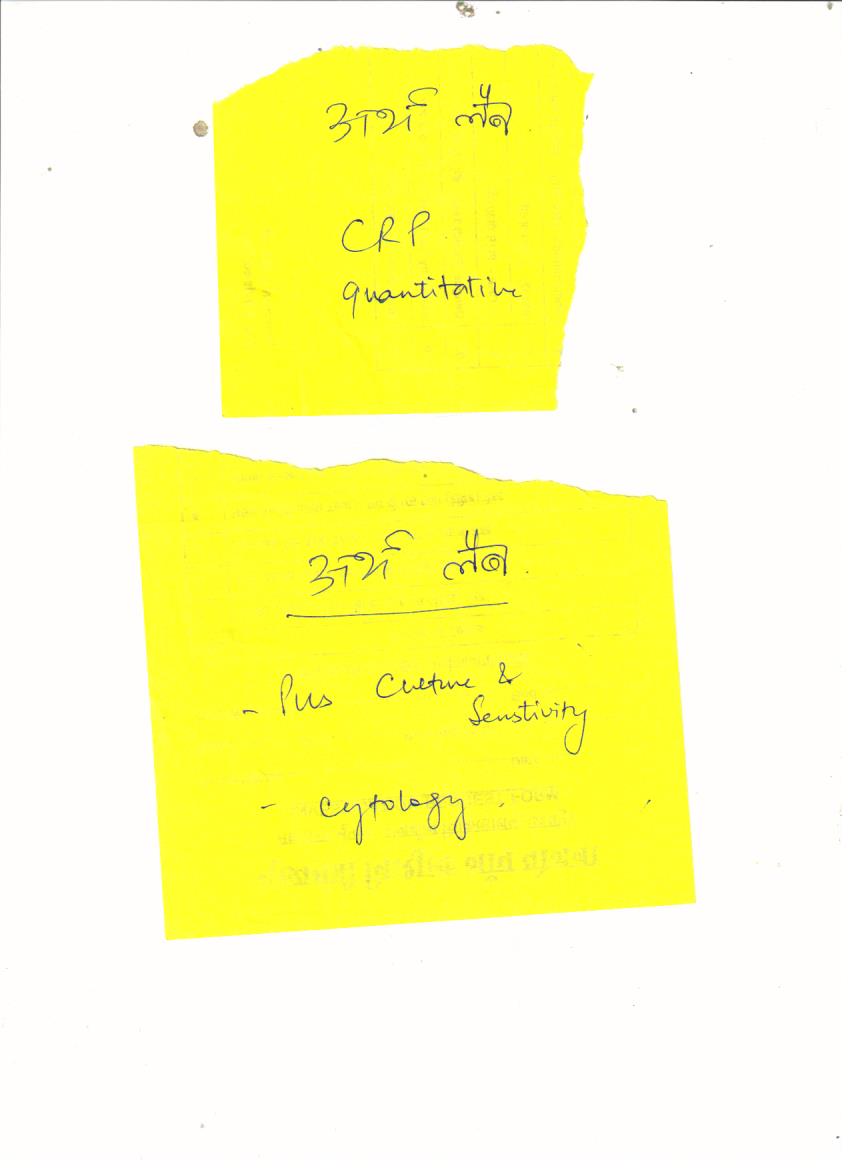 अर्थ लैब
CRP
quantitative
अर्थ लैब.
- Pus Culture &
Senstivity
- Cytology.